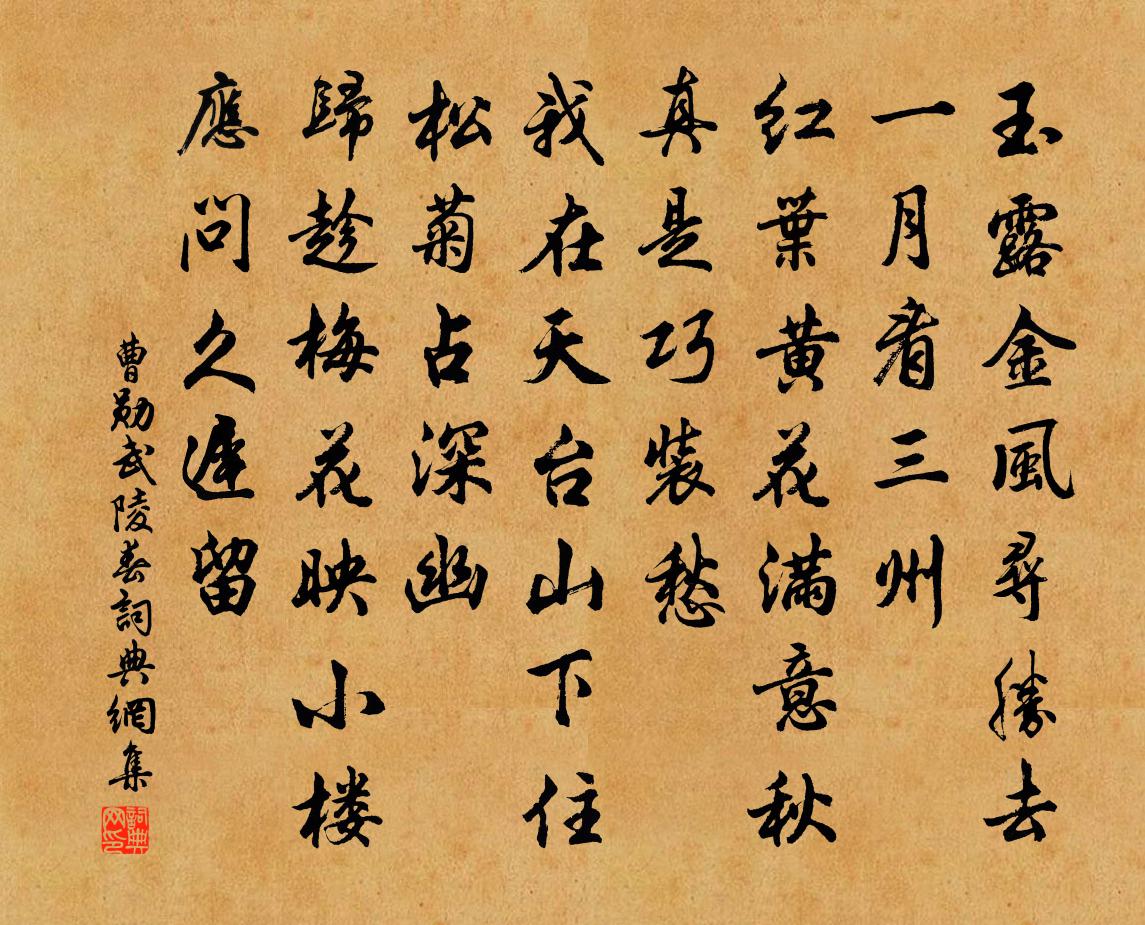 玉露金風尋勝去
一月看三州
红葉黄花滿意秋
真是巧裝愁
我在天台山下住
松菊占深幽
歸趁梅花映小楼
應問久遲留
曹勛武陵春詞典網集
詞典网印